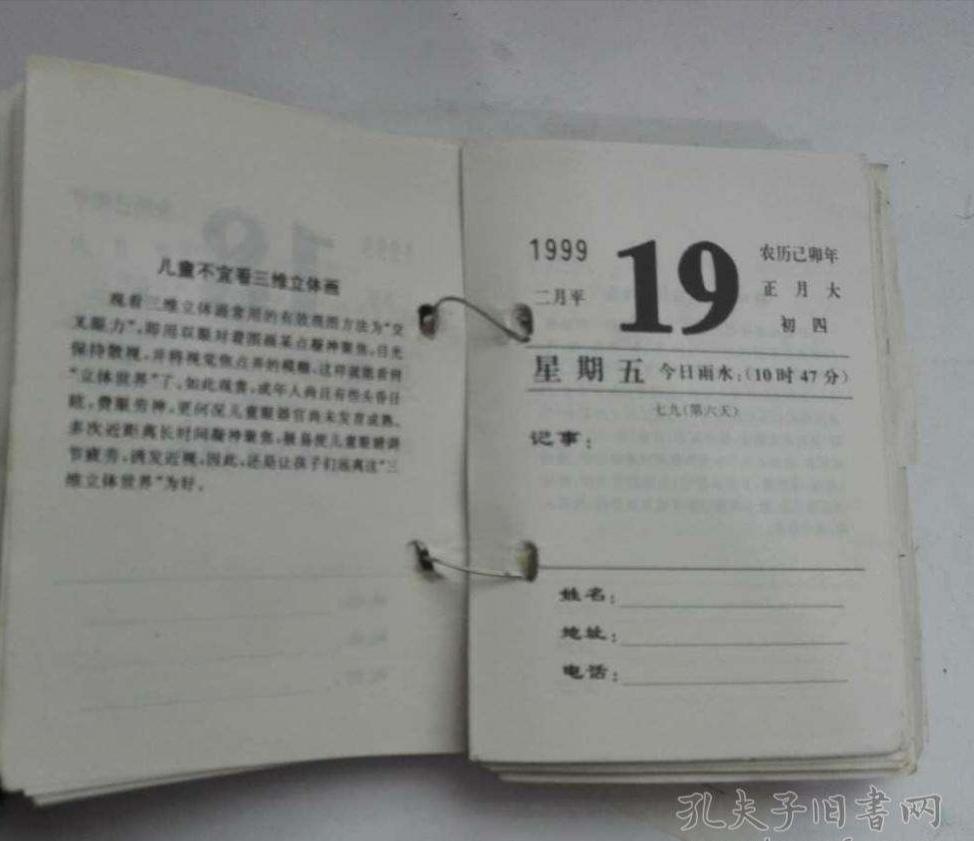 儿童不宜看三维立体画
观看三维立体画常用的有效视图方法为“交
叉眼力”，即用双眼对着图画某点凝神聚焦，目光
保持散视，并将视觉焦点弄的模糊，这样就能看到
“立体世界”了。如此观赏，成年人尚且有些头昏目
眩，费眼劳神，更何况儿童眼器官尚未发育成熟，
多次近距离长时间凝神聚焦，极易使儿童眼睛调
节疲劳，诱发近视。因此，还是让孩子们远离这“三
维立体世界”为好。
1999
19
农历己卯年
二月平
正月大
初四
星期五 今日雨水：(10时47分)
七九(第六天)
记事：
姓名：
地址：
电话：
孔夫子旧书网